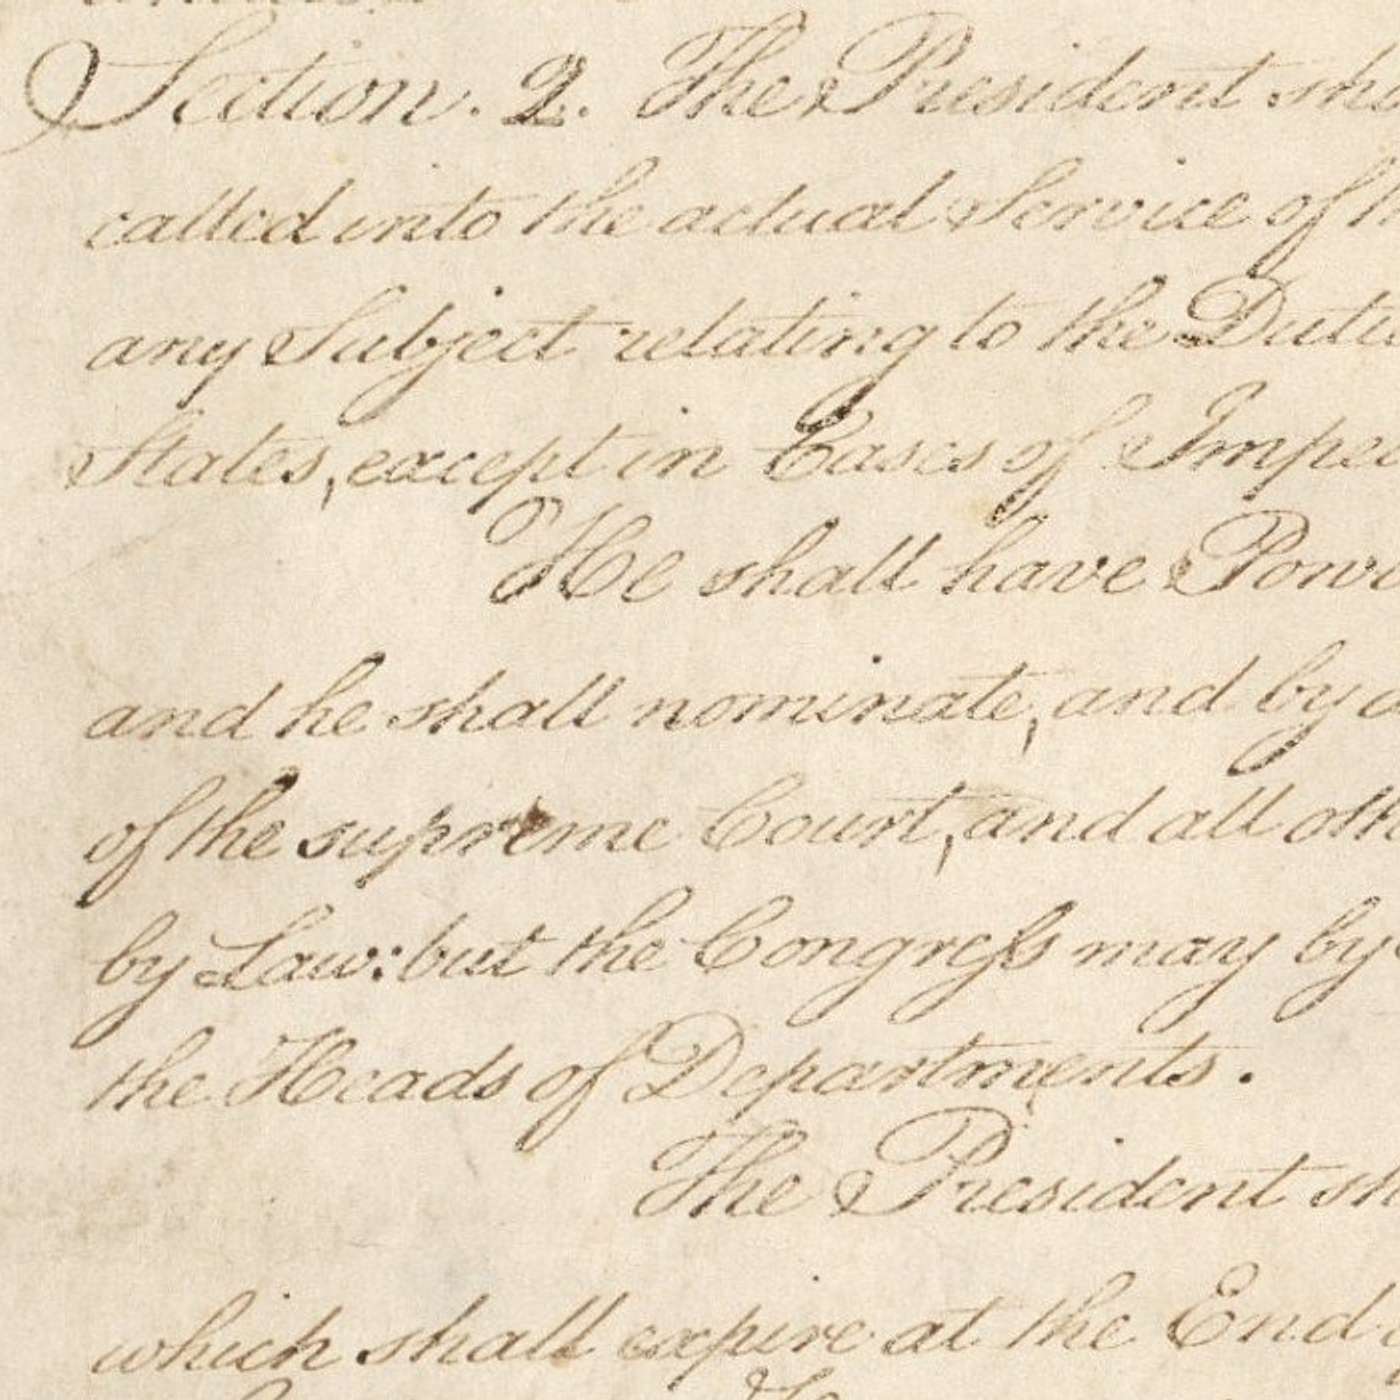 Section. 2. The President sha
called into the actual Service of th
any Subject relating to the Dutie
States, except in Cases of Impea
He shall have Powe
and he shall nominate, and by a
of the supreme Court, and all oth
by Law: but the Congress may by
the Heads of Departments.
The President sh
which shall expire at the End